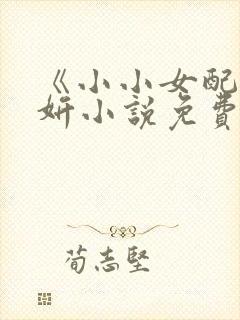 《小小女配
妍小說免費
荀志堅